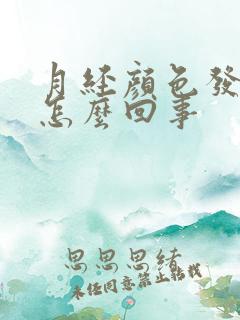 月经颜色發
怎麼回事
思思思绪
未经同意禁止转载